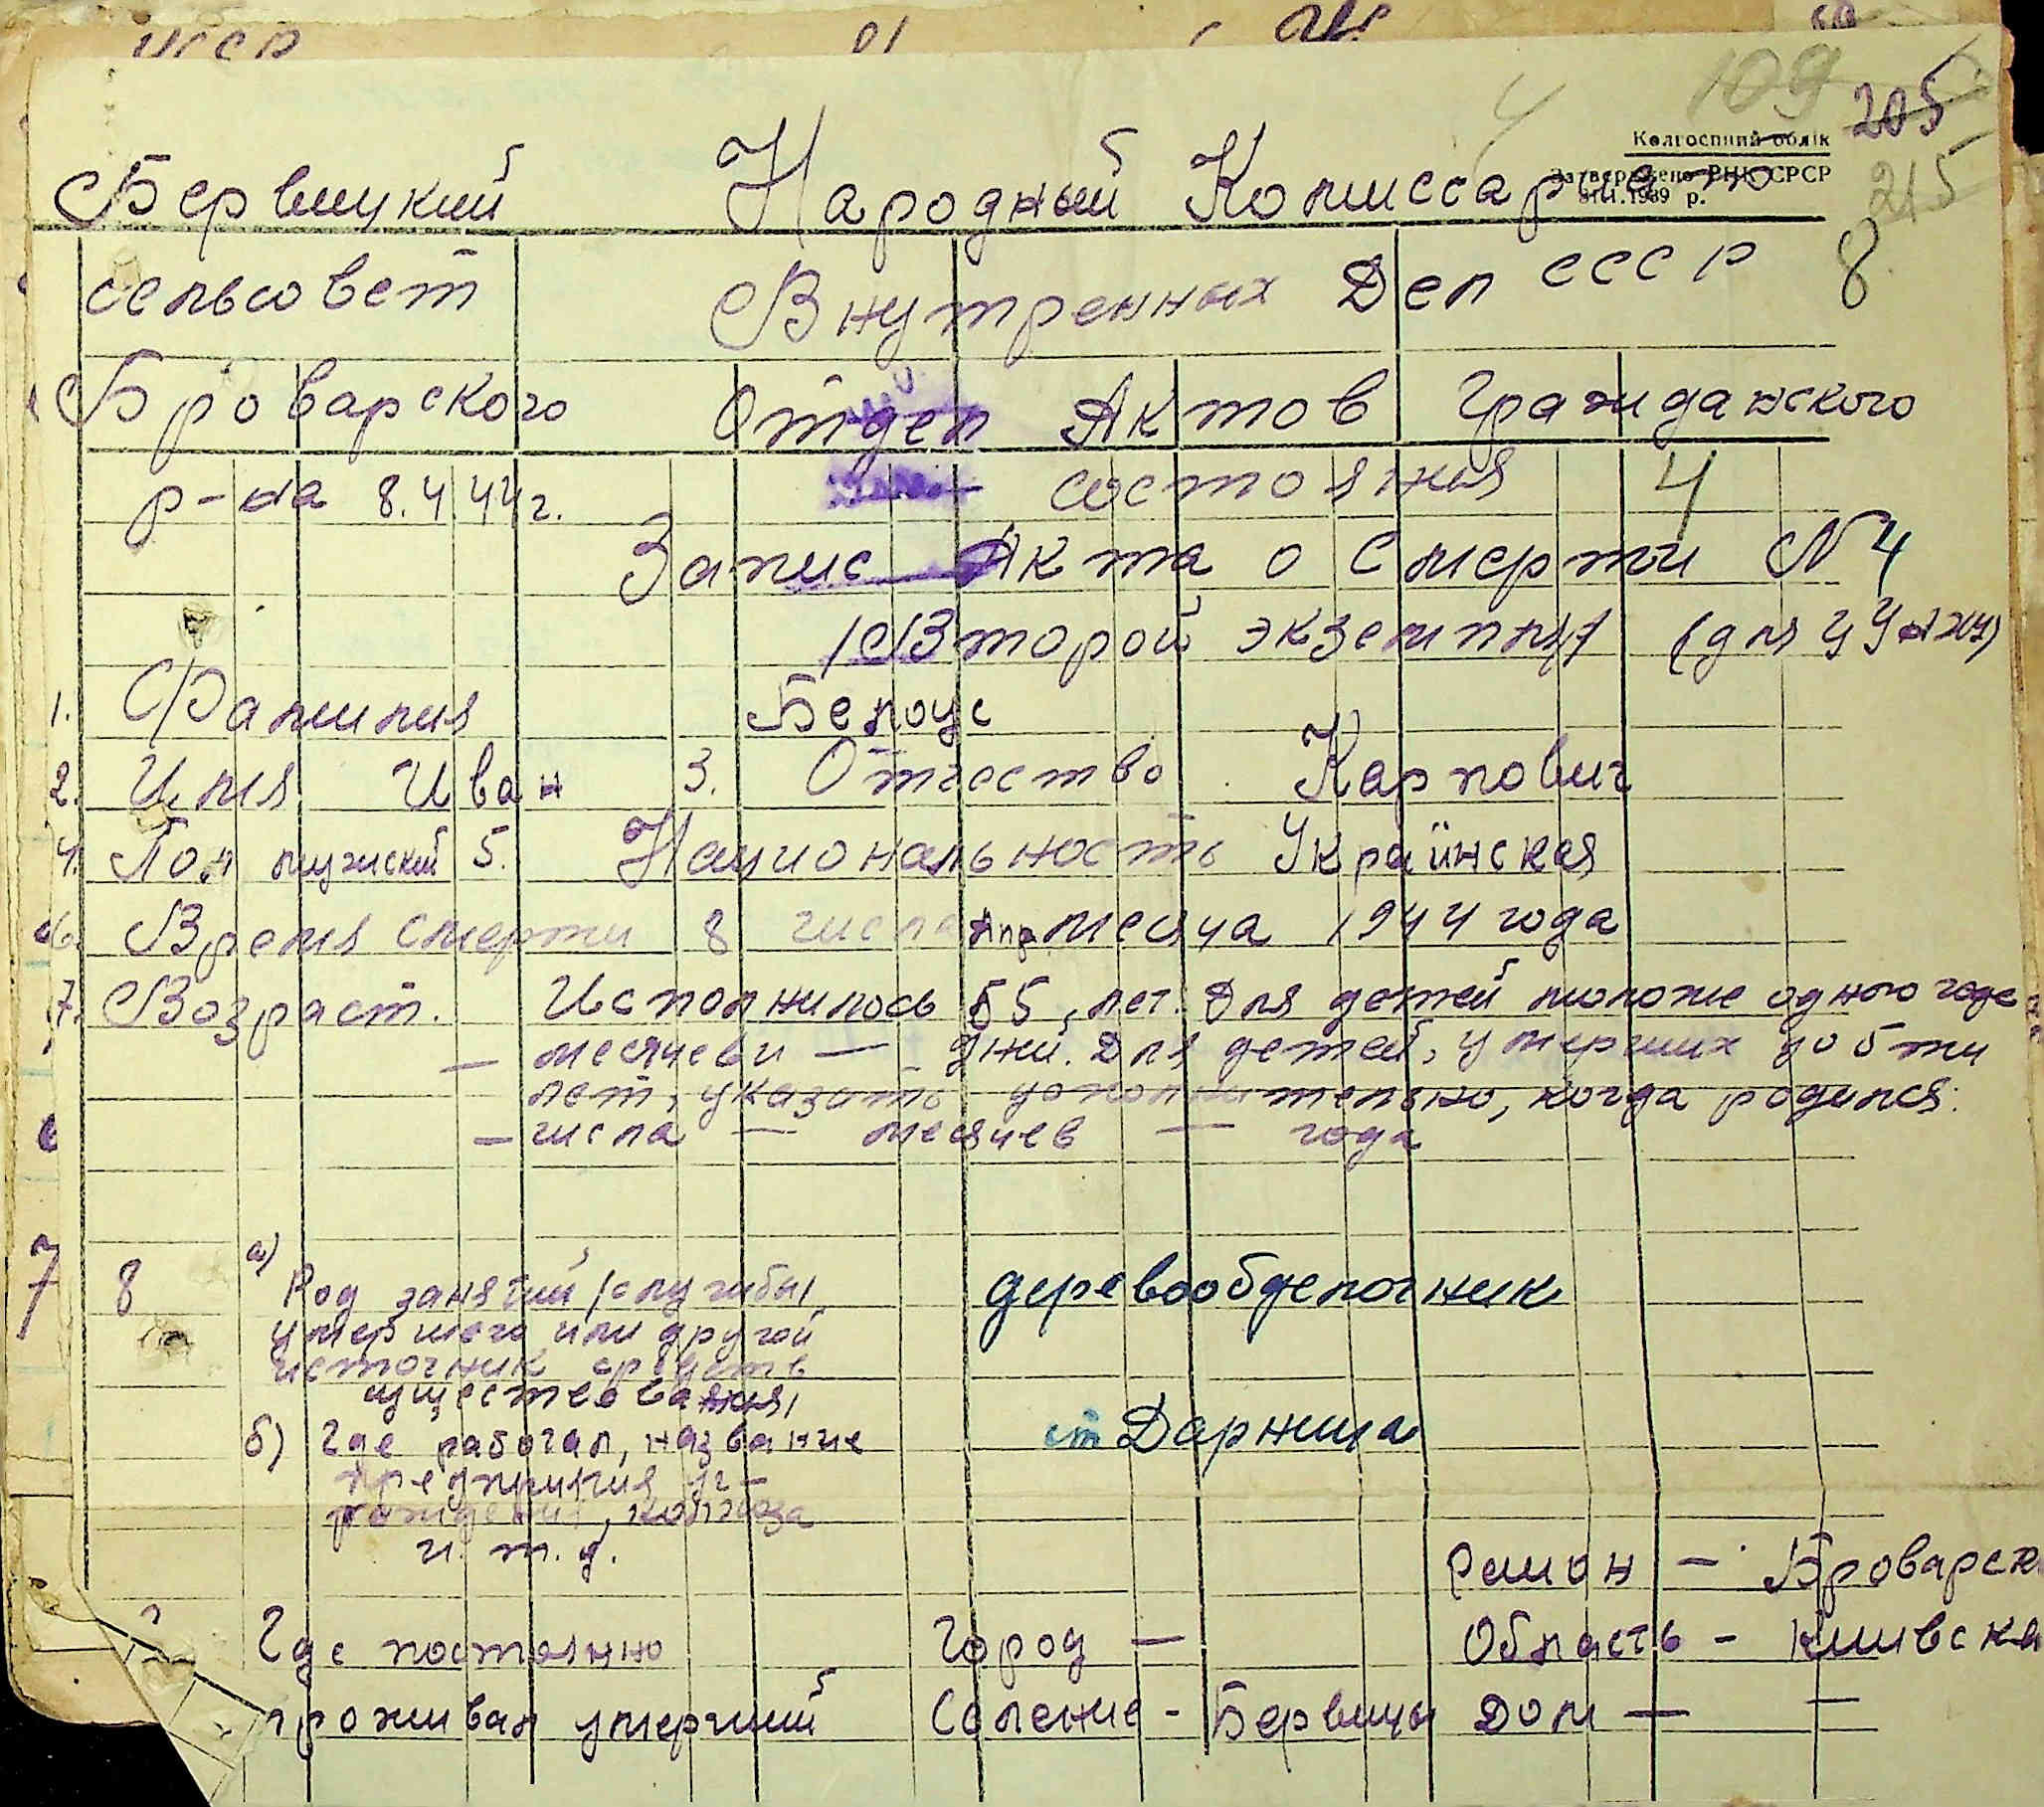 4 109 205
Колгоспний облік
Затверджено РНК СРСР
1939 р.
215
Бервицкий Народный Комиссариат
8
сельсовет Внутренных Дел СССР
Броварского Отдел Актов Гражданского
р-на 8.4.44 г. состояния 4
Запис Акта о Смерти N 4
/Второй экземпляр/
1. Фамилия Белоус
2. Имя Иван 3. Отчество Карпович
4. Пол мужский 5. Национальность Украинская
6. Время смерти 8 числа Апр месяца 1944 года
7. Возраст. Исполнилось 55 лет. Для детей моложе одного года
— месяцев и — дней. Для детей, умерших до 5ти
лет, указать дополнительно, когда родился:
— числа — месяцев — года
7 8 а) Род занятий /службы/ деревообделочник
умершего или другой
источник средств
существования/
б) Где работал, название ст Дарница
предприятия уч-
реждения, колхоза
и. т. д.
Район — Броварск
Где постоянно Город — Область - Киивска
проживал умерший Селение - Бервицы Дом — —